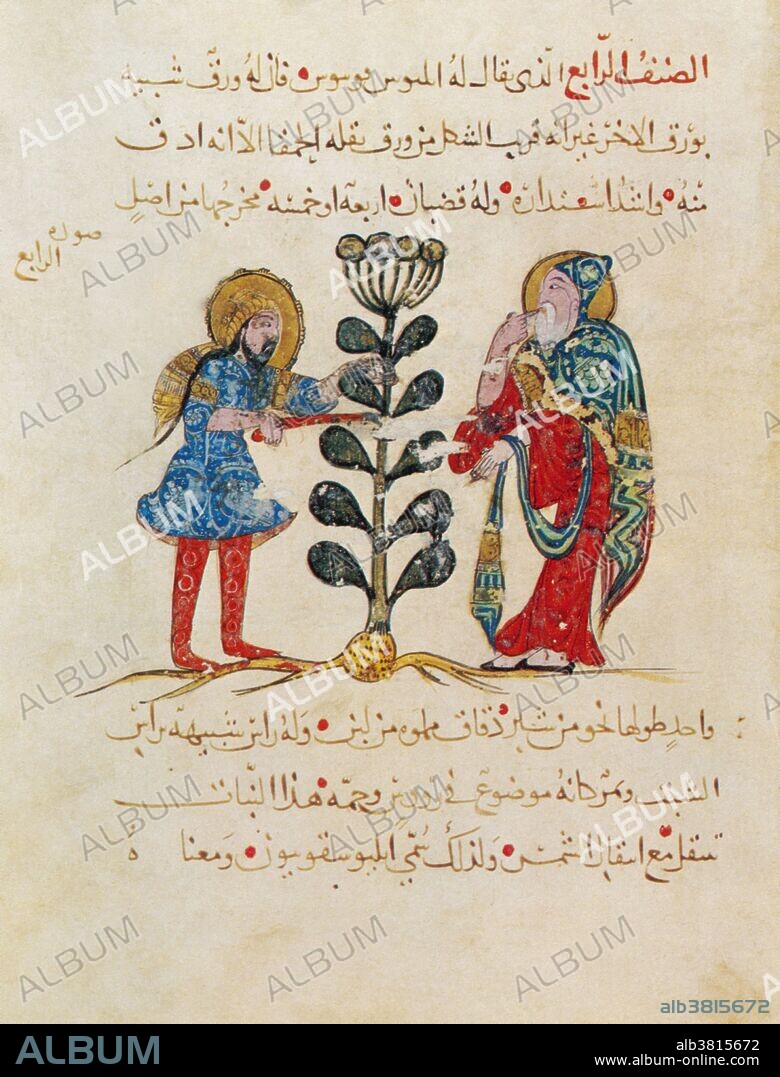 الصنف الرابع الذى يقال له المبوس قوسوس فان له ورق شبيه
بورق الاخر غير انه قريب الشكل من ورق بقله الحمقا الا انه ادق
منه واشد استدارة وله قضبان اربعه او خمسه مخرجها من اصل
صورة
الرابع
واحد طولها نحو من شبر دقاق مملوه من لبن وله راس شبيهه براس
الشبت وثمر كانه موضوع فى وجمه هذا النبات
تنتقل مع انتقال الشمس ولذلك سمي ايليوسقوبيون ومعنا
ALBUM
alb3815672
ALBUM
alb3815672
www.album-online.com